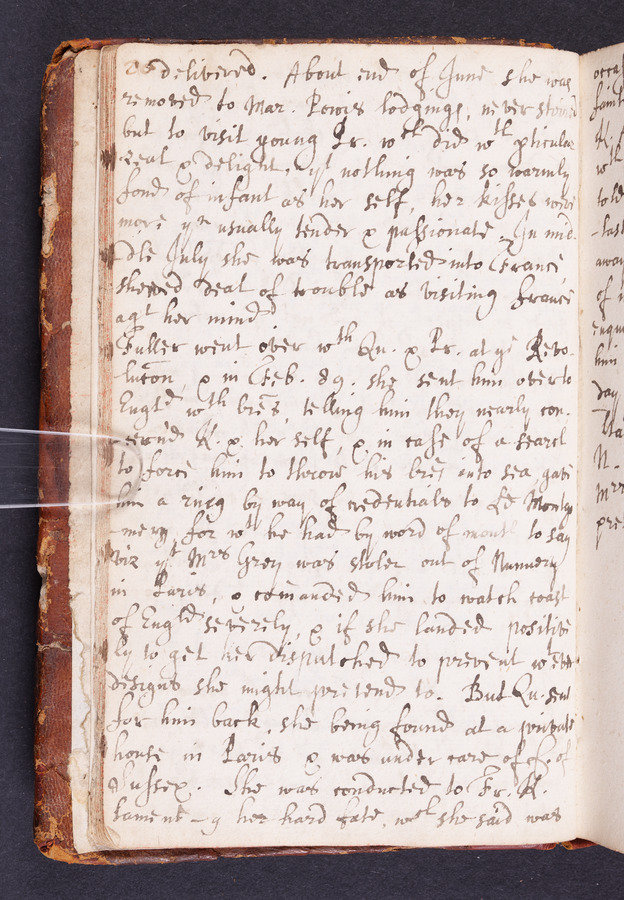 delivered. About end of June she was
removed to Mar. Powis lodgings, never stirred
but to visit young Pr. wch did wth pticular
zeal & delight, yt nothing was so warmly
fond of infant as her self, her kisses were
more yn usually tender & passionate. In mid-
-dle July she was transported into France,
shewed deal of trouble as visiting France
agt her mind
Fuller went over wth Qu. & Pr. at ye Revo-
lucōn, & in Feb. 89. she sent him over to
EnglD wth lrēs, telling him they nearly con-
-cern'd K. & her self, & in case of a search
to force him to throw his lrēs into sea, gave
him a ring by way of credentials to Ld Montgo
-mery, for wt he had by word of mouth to say
viz yt Mrs Grey was stolen out of Nunnery
in Paris, & comanded him to watch coast
of Engld severely, & if she landed positive
ly to get her disputched to prevent wtever
designs she might pretend to. But Qu. sent
for him back, she being found at a private
house in Paris & was under care of of
Sussex. She was conducted to Fr. K.
lament-g her hard fate, wch she said was